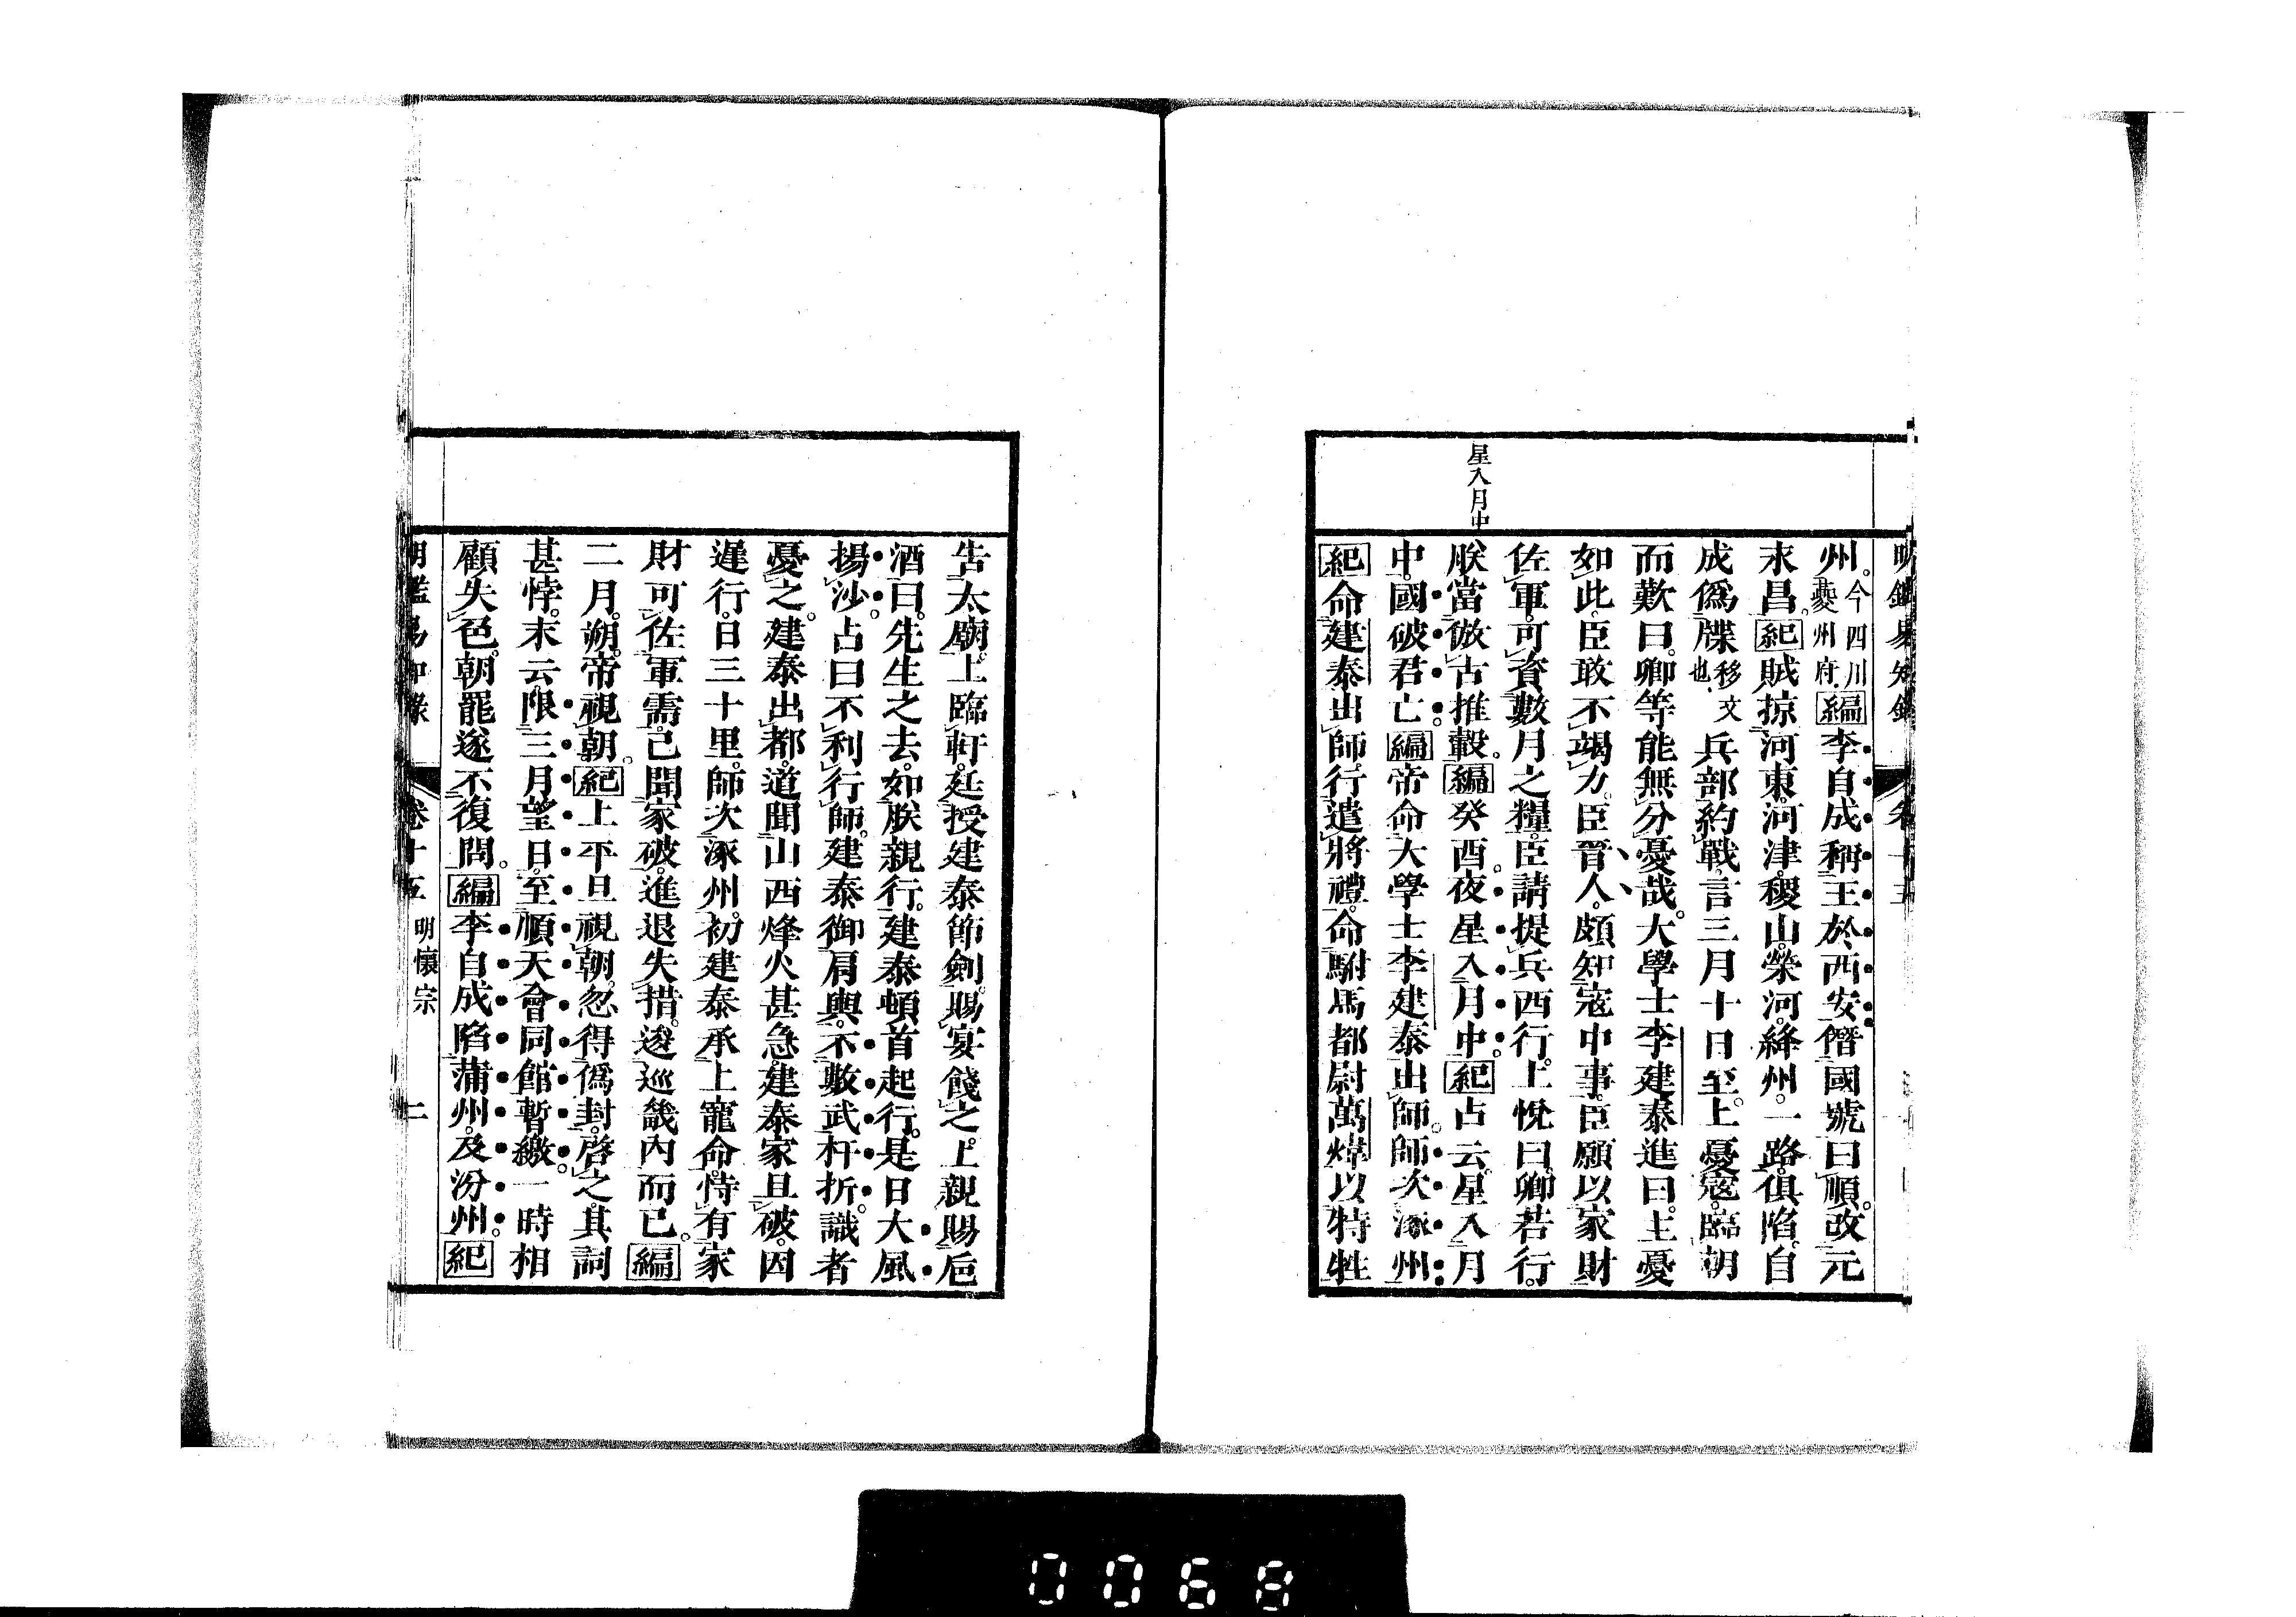 明鑑易知錄 卷十五
星入月中
州。今四川夔州府。編李自成稱王於西安僭國號曰順。改元
永昌。紀賊掠河東。河津。稷山。滎河。絳州。一路俱陷。自
成僞牒移文也。兵部約戰。言三月十日至。上憂寇。臨朝
而歎曰。卿等能無分憂哉。大學士李建泰進曰。主憂
如此。臣敢不竭力。臣晉人。頗知寇中事。臣願以家財
佐軍。可資數月之糧。臣請提兵西行。上悅曰。卿若行。
朕當倣古推轂。編癸酉。夜星入月中。紀占云。星入月
中。國破君亡。編帝命大學士李建泰出師。師次涿州
紀命建泰出師。行遣將禮。命駙馬都尉萬煒以特牲
告太廟。上臨軒。廷授建泰節劍。賜宴餞之。上親賜巵
酒曰。先生之去。如朕親行。建泰頓首起行。是日大風
揚沙。占曰不利行師。建泰御肩輿。不數武杆折。識者
憂之。建泰出都。道聞山西烽火甚急。建泰家且破。因
遲行。日三十里。師次涿州。初建泰承上寵命。恃有家
財可佐軍需。已聞家破。進退失措。逡巡畿內而已。編
二月。朔。帝視朝。紀上平旦視朝。忽得僞封。啓之。其詞
甚悖。末云。限三月望日。至順天會同館暫繳。一時相
顧失色。朝罷。遂不復問。編李自成陷蒲州。及汾州。紀
明鑑易知錄 卷十五 明懷宗 二
0068